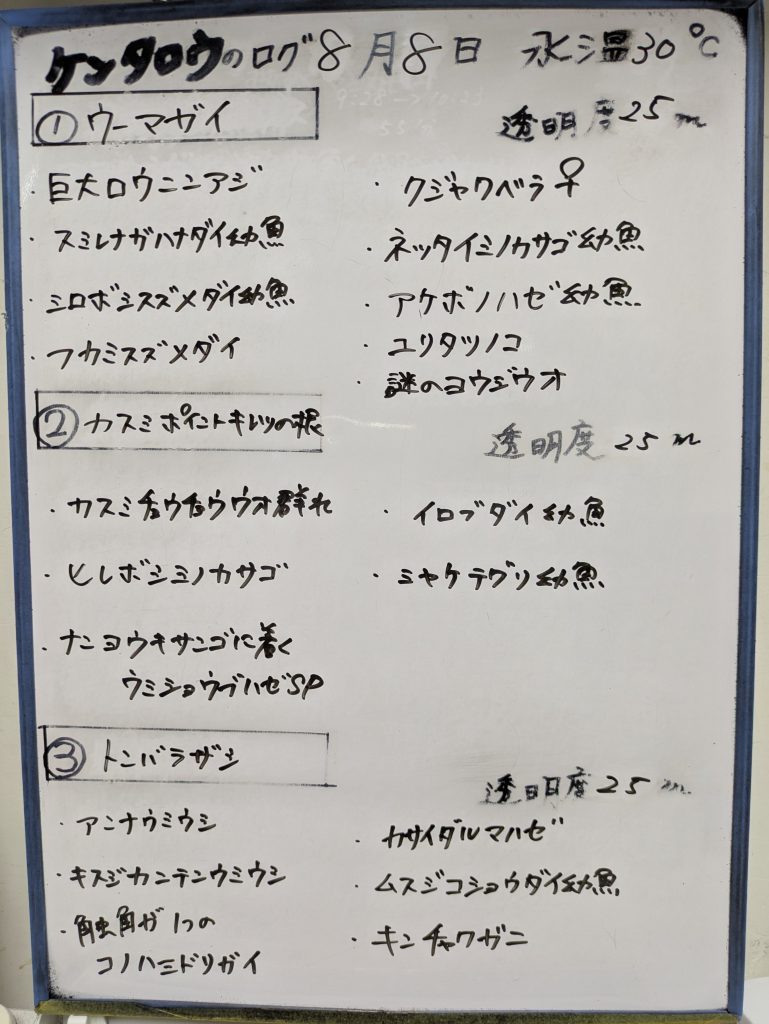 ケンタロウのログ 8月8日 水温30℃
① ウーマガイ 透明度25m
・巨大ロウニンアジ
・スミレナガハナダイ幼魚
・シロボシスズメダイ幼魚
・フカミスズメダイ
・クジャクベラ♀
・ネッタイミノカサゴ幼魚
・アケボノハゼ幼魚
・ユリタツノコ
・謎のヨウジウオ
② カスミポイントキレツの根 透明度25m
・カスミチョウチョウウオ群れ
・ヒレボシミノカサゴ
・ナンヨウキサンゴに着く
ウミショウブハゼSP
・イロブダイ幼魚
・ミヤケテグリ幼魚
③ トンバラザシ 透明度25m
・アンナウミウシ
・キスジカンテンウミウシ
・触角が1つの
コノハミドリガイ
・カサイダルマハゼ
・ムスジコショウダイ幼魚
・キンチャクガニ